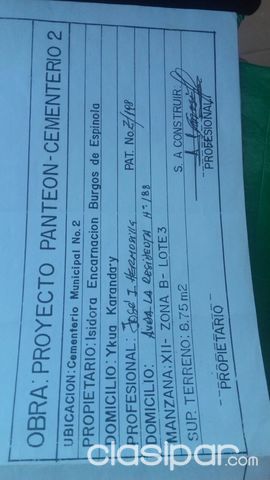 OBRA: PROYECTO PANTEON-CEMENTERIO 2
UBICACION: Cementerio Municipal No. 2
PROPIETARIO: Isidora Encarnacion Burgos de Espinola
DOMICILIO: Ykua Karanda'y
PROFESIONAL: JOSE I. HERMOSILLA PAT. No. 2/198
DOMICILIO: AVDA. LA RESIDENTA Nº 188
MANZANA: XII- ZONA B- LOTE 3
SUP. TERRENO: 8,75 m2 S. A CONSTRUIR
PROPIETARIO
PROFESIONAL
clasipar.com